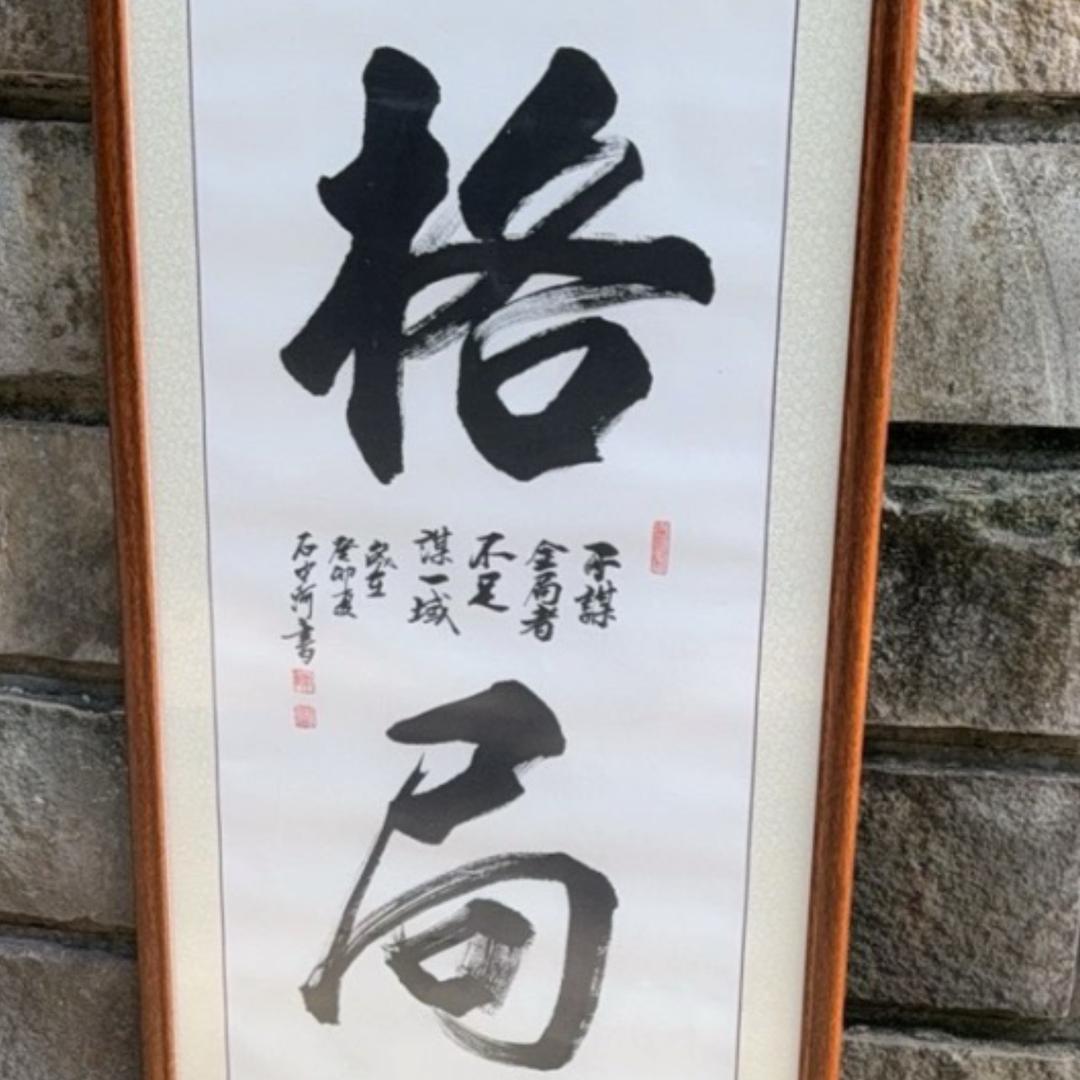 格
局
不謀
全局者
不足
謀一域
歲在
癸卯夏
石少河書